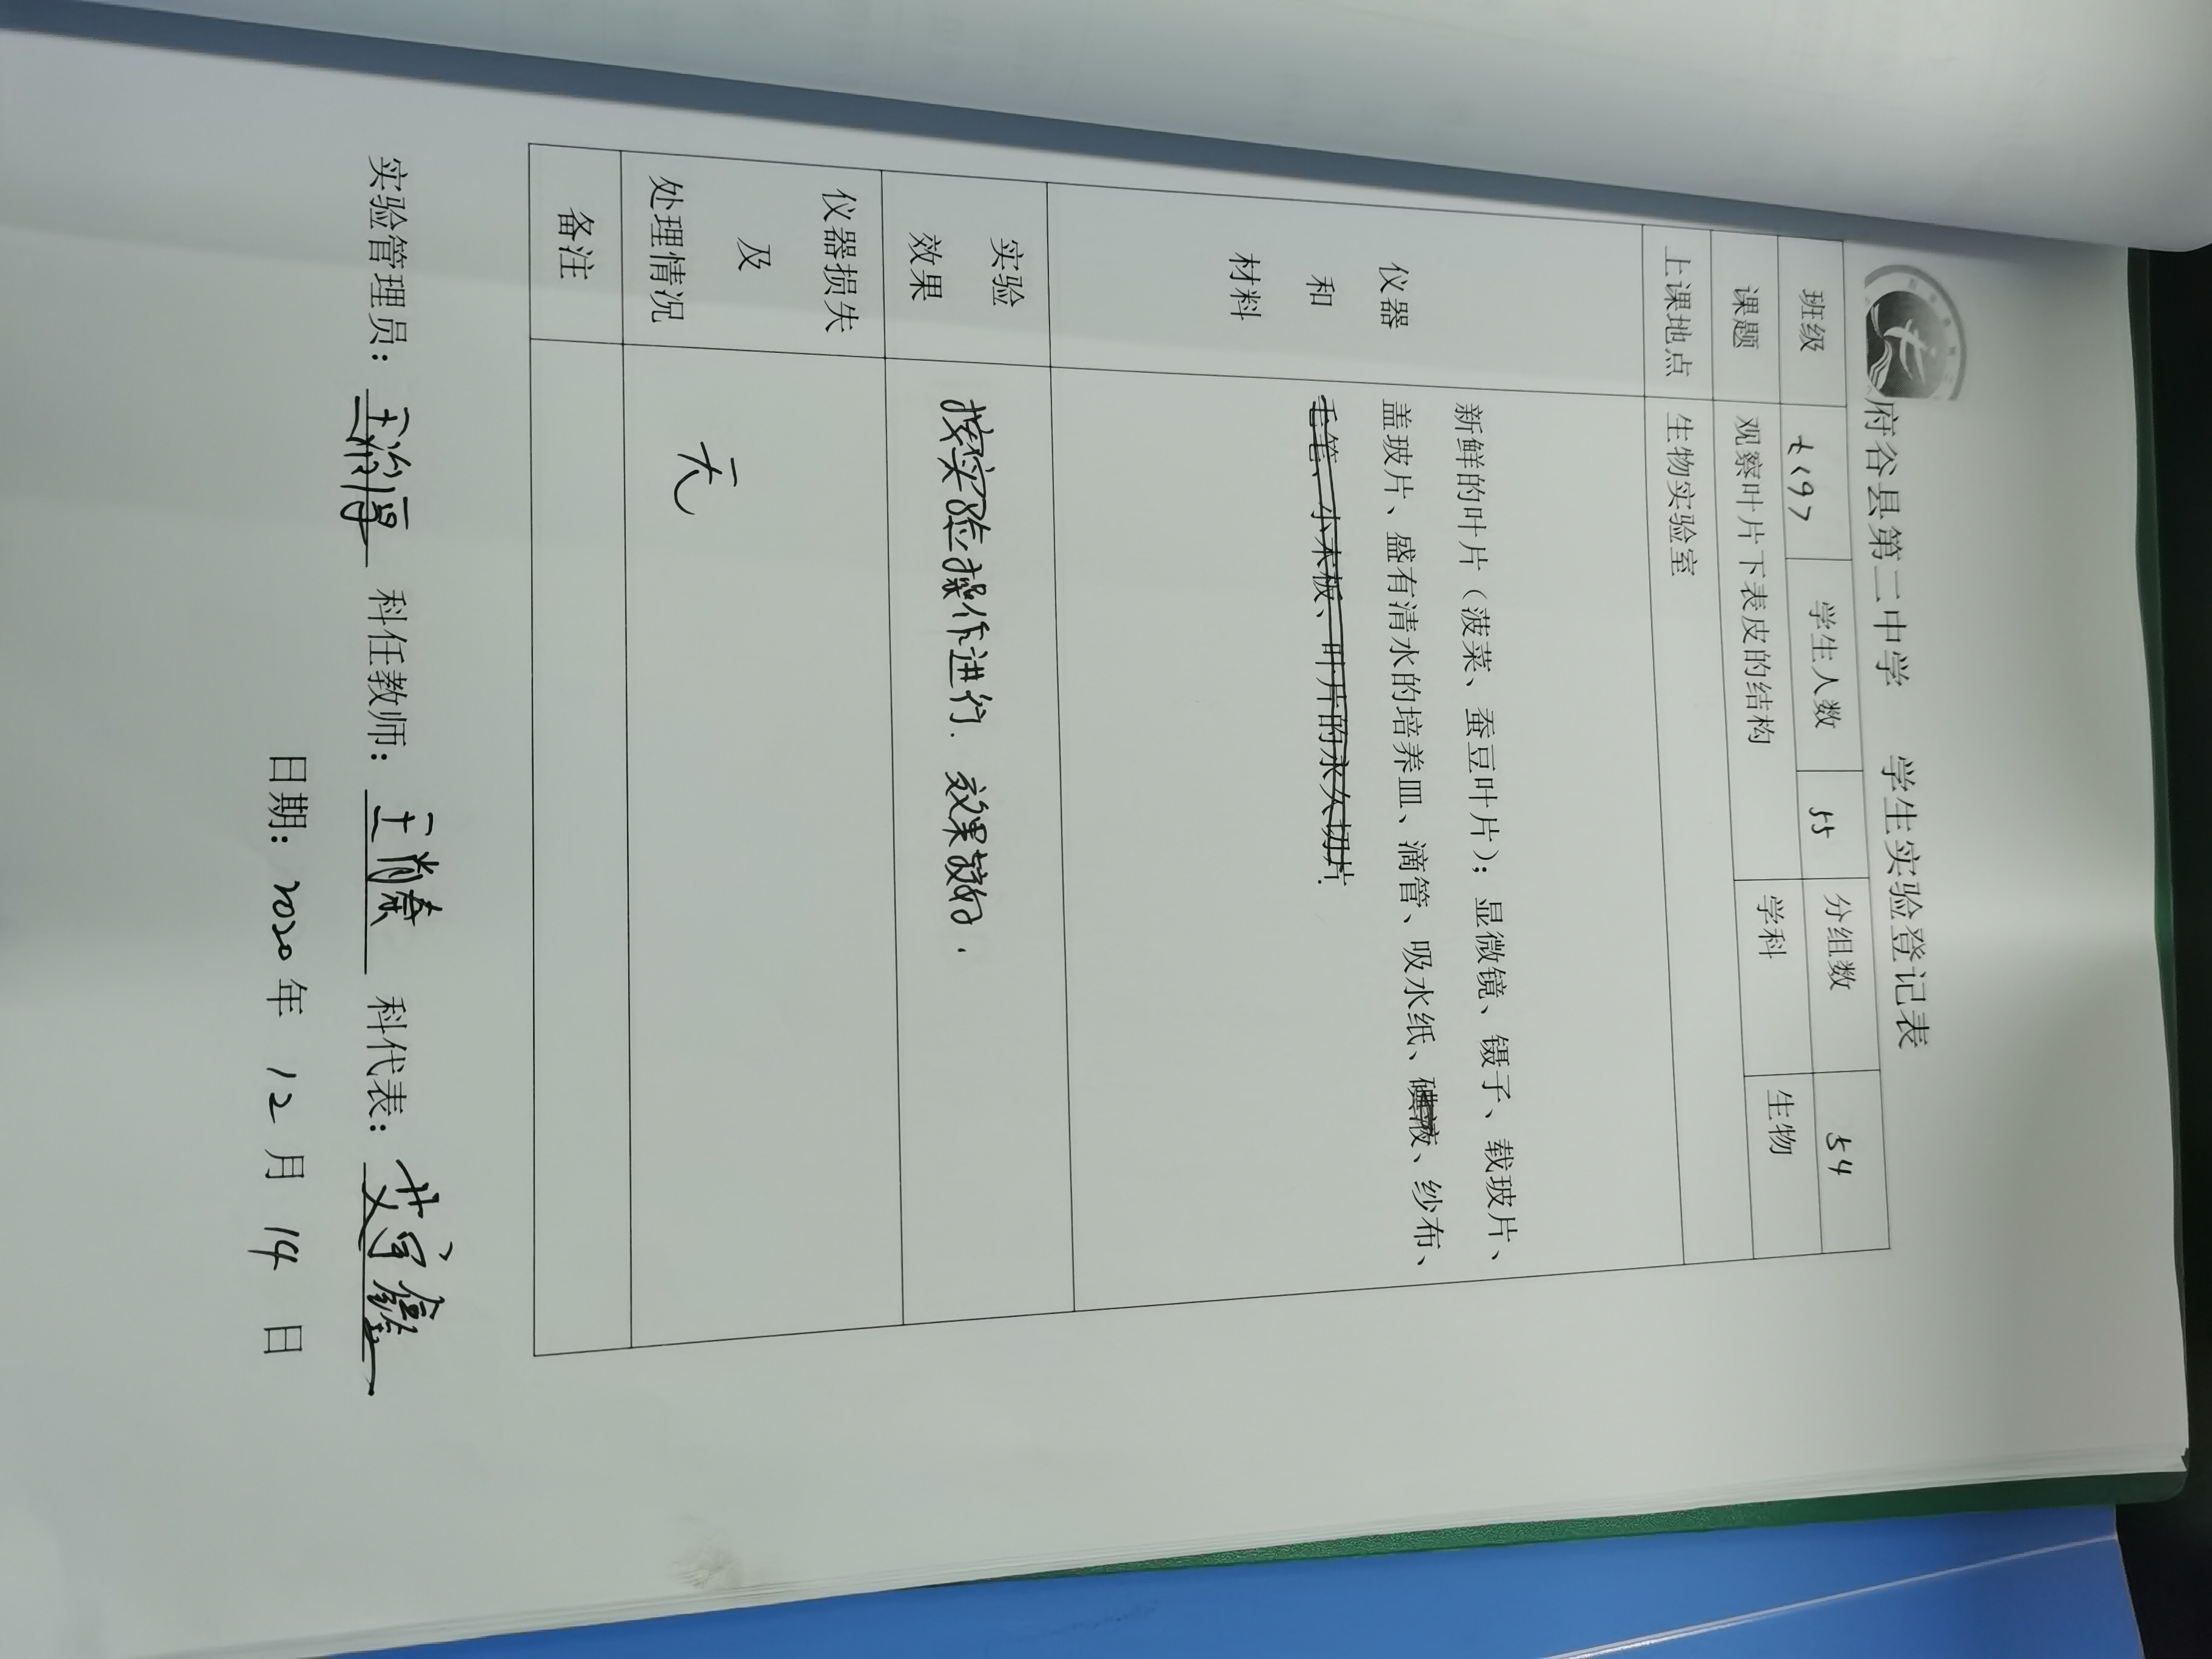 府谷县第二中学 学生实验登记表
班级 七<9> 学生人数 55 分组数 54
课题 观察叶片下表皮的结构 学科 生物
上课地点 生物实验室
仪器
和
材料
新鲜的叶片（菠菜、蚕豆叶片）；显微镜、镊子、载玻片、
盖玻片、盛有清水的培养皿、滴管、吸水纸、碘液、纱布、
毛笔、小木板、叶片的永久切片.
实验
效果
按实验操作进行. 效果较好.
仪器损失
及
处理情况
无
备注
实验管理员： 科任教师： 王肖 科代表： 艾宇鑫
日期：2020年 12月 14日